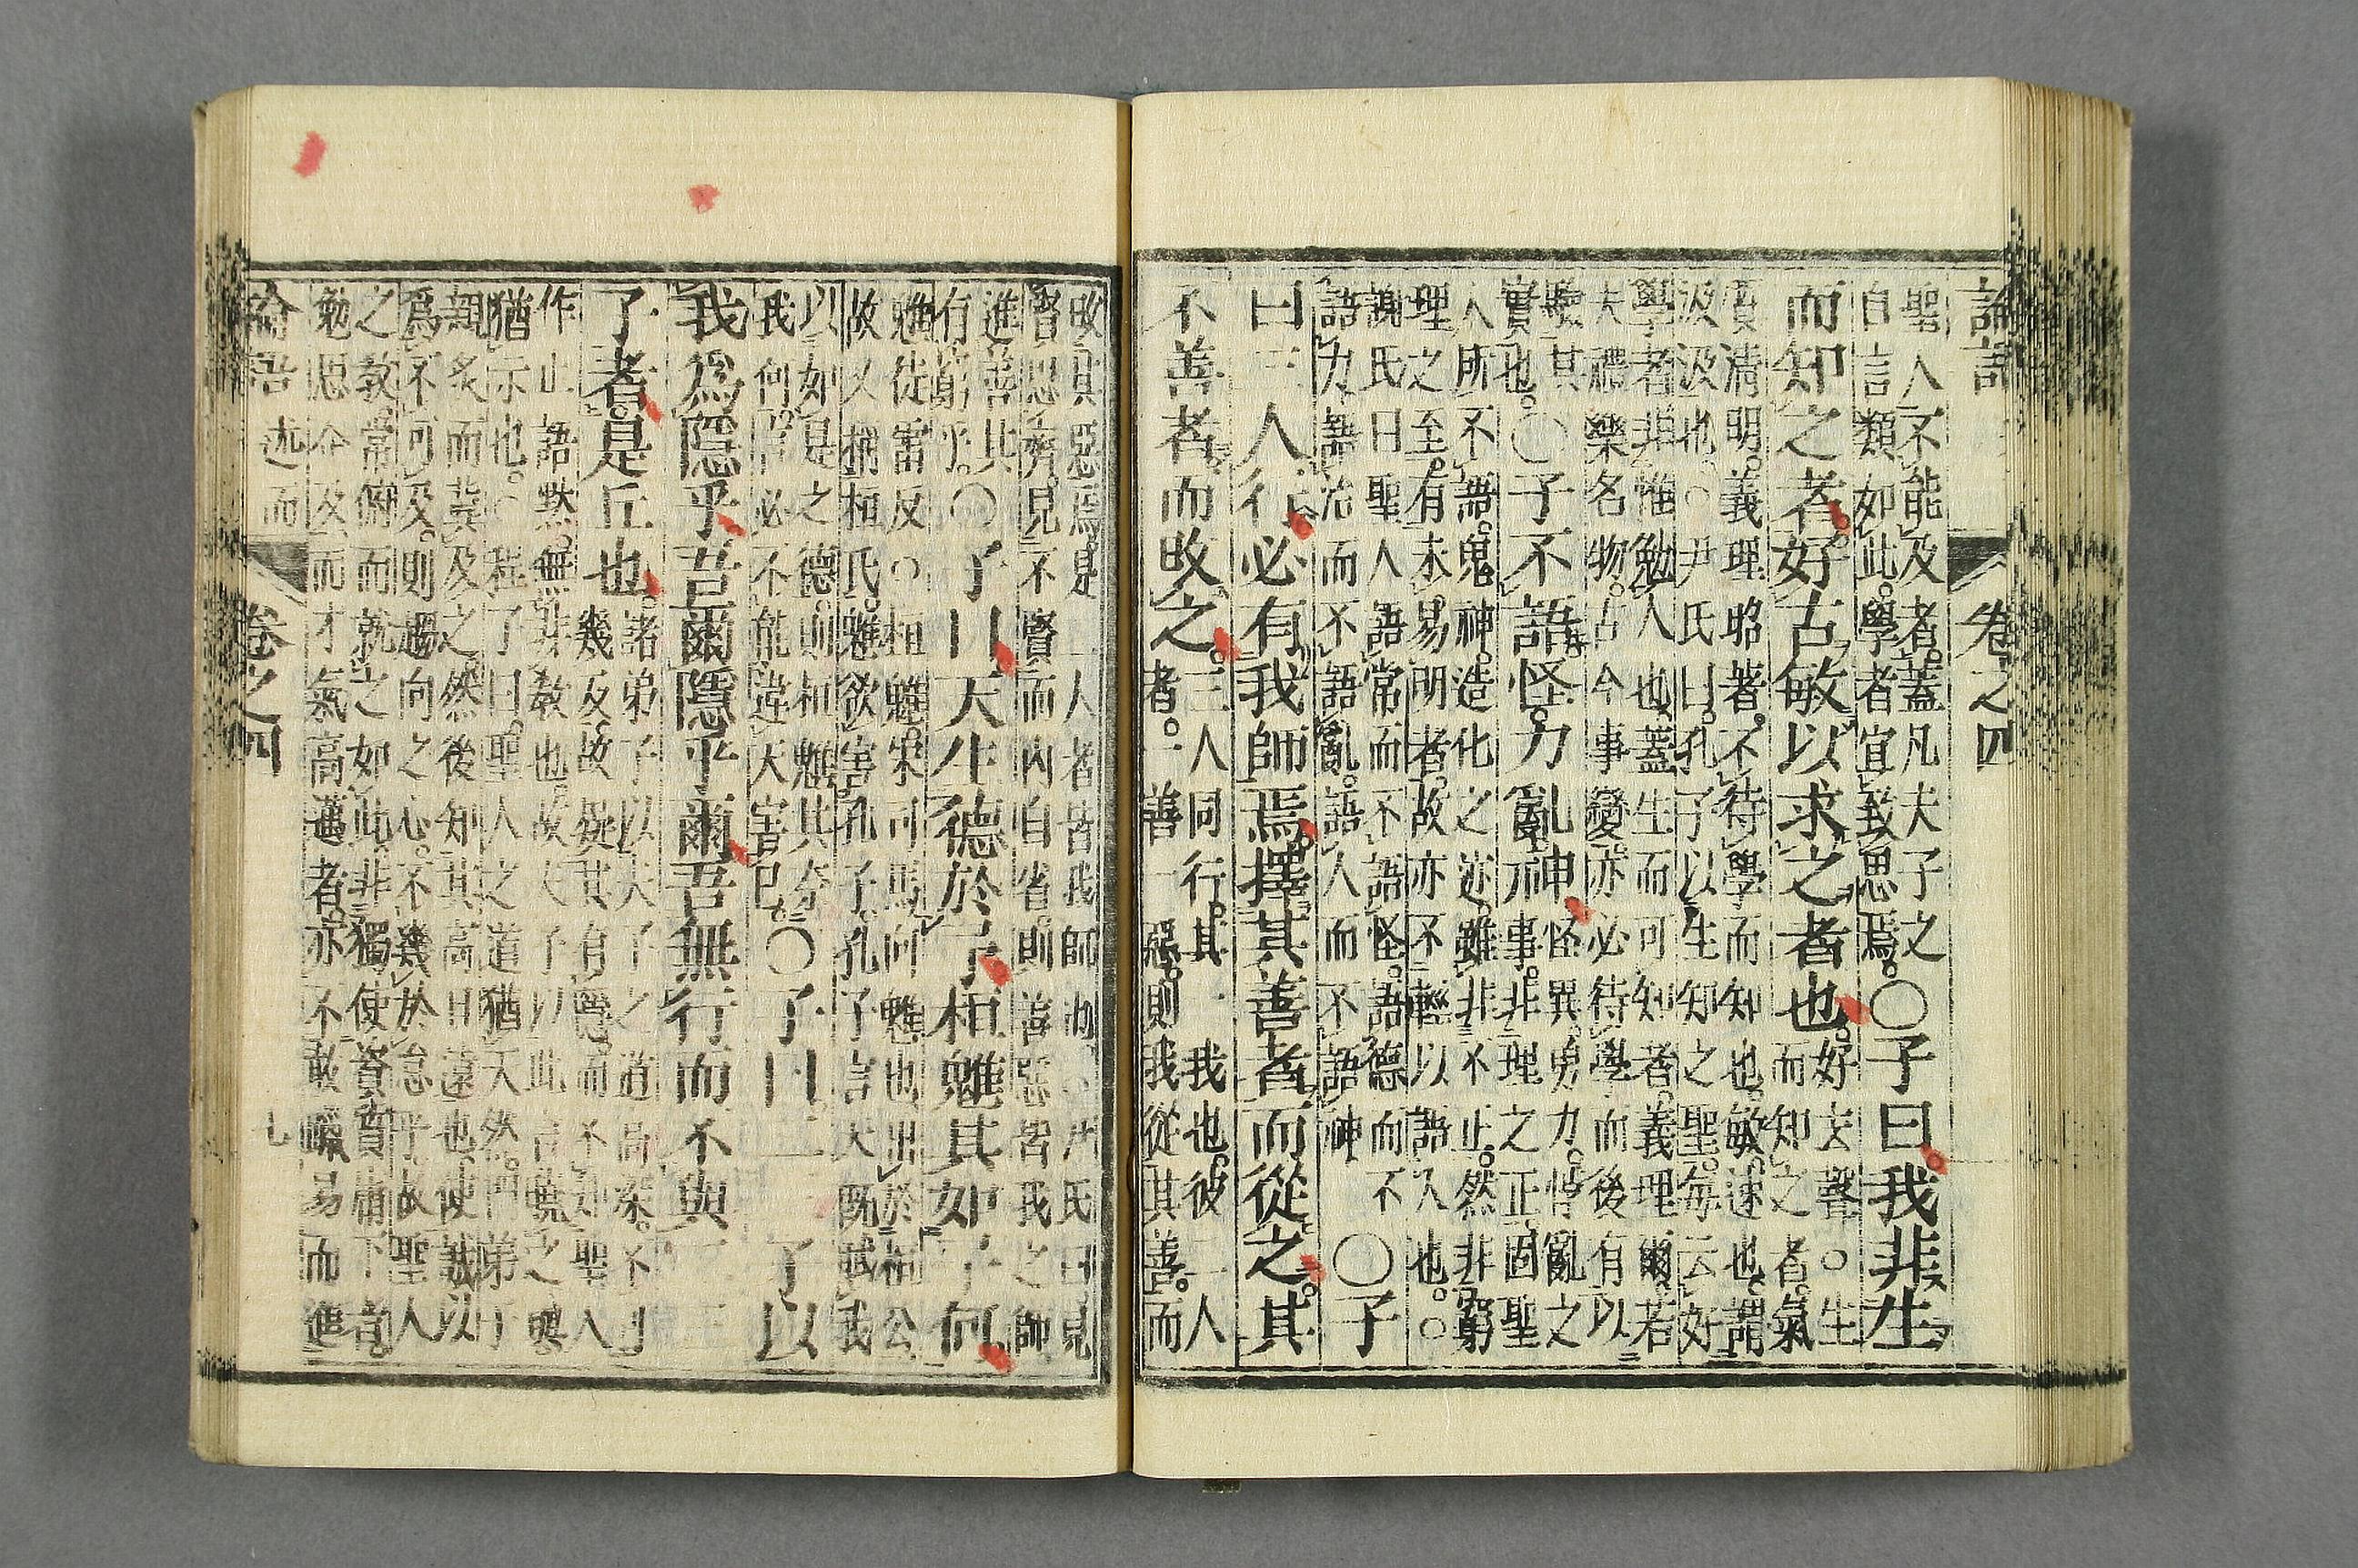 論語 卷之四
聖人不能及者。蓋凡夫子之
自言類如此。學者宜致思焉。
○子曰。我非生
而知之者。好古敏以求之者也。
好去聲。○生
而知之者。氣
質清明。義理昭著。不待學而知也。敏速也。謂
汲汲也。○尹氏曰。孔子以生知之聖。每云好
學者非惟勉人也。蓋生而可知者。義理爾。若
夫禮樂名物。古今事變。亦必待學而後有以
驗其
實也。
○子不語怪。力亂神
怪異。勇力。悖亂之
事。非理之正。固聖
人所不語。鬼神。造化之迹。雖非不正。然非窮
理之至。有未易明者。故亦不輕以語人也。○
謝氏曰聖人語常而不語怪。語德而不
語力。語治而不語亂。語人而不語神
○子
曰三人行。必有我師焉。擇其善者而從之。其
不善者而改之。
三人同行。其一我也。彼二人
者。一善一惡。則我從其善。而
改其惡焉。是二人者皆我師也。○尹氏曰見
賢思齊。見不賢而內自省。則善惡皆我之師
進善其
有窮乎。
○子曰。天生德於予。桓魋其如予何
魋徒雷反○桓魋。宋司馬向魋也出於桓公
故又稱桓氏。魋欲害孔子。孔子言天既賦我
以如是之德。則桓魋其奈
我何。言必不能違天害己。
○子曰二三子以
我爲隱乎。吾爾隱乎爾。吾無行而不與二三
子者。是丘也。
諸弟子以夫子之道高深。不可
幾及。故疑其有隱而不知聖人
作止語黙。無非教也。故夫子以此言曉之。與
猶示也。○程子曰。聖人之道猶天然。門弟子
親炙而冀及之。然後知其高且遠也。使誠以
爲不可及。則趨向之心。不幾於怠乎。故聖人
之教。常俯而就之如此。非獨使資質庸下者。
勉思企及。而才氣高邁者。亦不敢躐易而進
論語 述而 卷之四 七